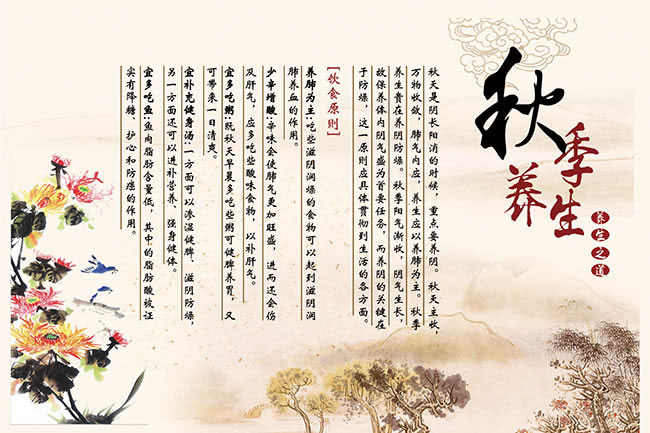 秋季养生
养生之道
秋天是阴长阳消的时候，重点要养阴。秋天主收，
万物收敛，肺气内应，养生应以养肺为主。秋季
养生贵在养阴防燥。秋季阳气渐收，阴气生长，
故保养体内阴气盛为首要任务，而养阴的关键在
于防燥，这一原则应具体贯彻到生活的各方面。
[饮食原则]
养肺为主:吃些滋阴润燥的食物可以起到滋阴润
肺养血的作用。
少辛增酸:辛味会使肺气更加旺盛，进而还会伤
及肝气，应多吃些酸味食物，以补肝气。
宜多吃粥:既秋天早晨多吃些粥可健脾养胃，又
可带来一日清爽。
宜补充健身汤:一方面可以渗湿健脾、滋阴防燥，
另一方面还可以进补营养、强身健体。
宜多吃鱼:鱼肉脂肪含量低，其中的脂肪酸被证
实有降糖、护心和防癌的作用。